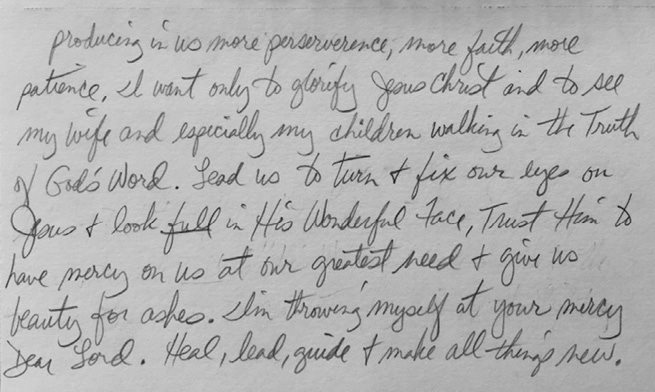 producing in us more perserverence, more faith, more
patience. I want only to glorify Jesus Christ and to see
my wife and especially my children walking in the Truth
of God's Word. Lead us to turn & fix our eyes on
Jesus & look full in His Wonderful Face, Trust Him to
have mercy on us at our greatest need & give us
beauty for ashes. I'm throwing myself at your mercy
Dear Lord. Heal, lead, guide & make all things new.